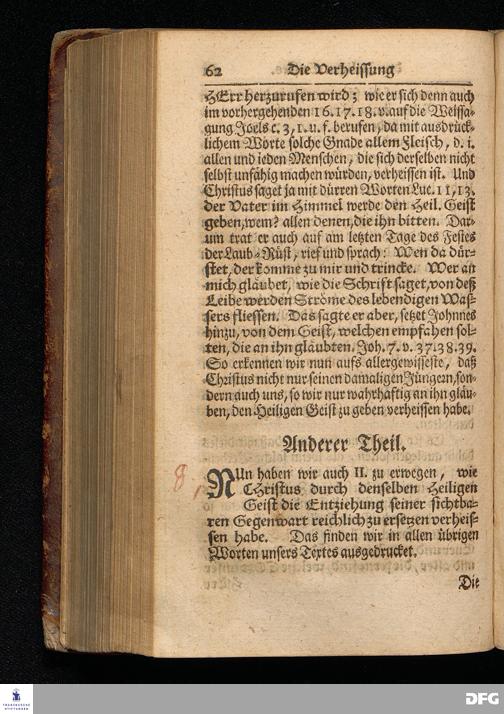 62 Die Verheissung
HErr herzurufen wird; wie er sich denn auch
im vorhergehenden 16. 17. 18. v. auf die Weissa-
gung Joels c. 3, 1. u. f. berufen, da mit ausdrück-
lichem Worte solche Gnade allem Fleisch, d. i.
allen und ieden Menschen, die sich derselben nicht
selbst unfähig machen würden, verheissen ist. Und
Christus saget ja mit dürren Worten Luc. 11, 13.
der Vater im Himmel werde den Heil. Geist
geben, wem? allen denen, die ihn bitten. Dar-
um trat er auch auf am letzten Tage des Festes
der Laub-Rüst, rief und sprach: Wen da dür-
stet, der komme zu mir und trincke. Wer an
mich gläubet, wie die Schrift saget, von deß
Leibe werden Ströme des lebendigen Was-
sers fliessen. Das sagte er aber, setzet Johnnes
hinzu, von dem Geist, welchen empfahen sol-
ten, die an ihn gläubten. Joh. 7. v. 37. 38. 39.
So erkennen wir nun aufs allergewisseste, daß
Christus nicht nur seinen damaligen Jüngern, son-
dern auch uns, so wir nur wahrhaftig an ihn gläu-
ben, den Heiligen Geist zu geben verheissen habe.
Anderer Theil.
8
NUn haben wir auch II. zu erwegen, wie
CHristus durch denselben Heiligen
Geist die Entziehung seiner sichtba-
ren Gegenwart reichlich zu ersetzen verheis-
sen habe. Das finden wir in allen übrigen
Worten unsers Textes ausgedrucket.
Die
FRANCKESCHE
STIFTUNGEN
DFG